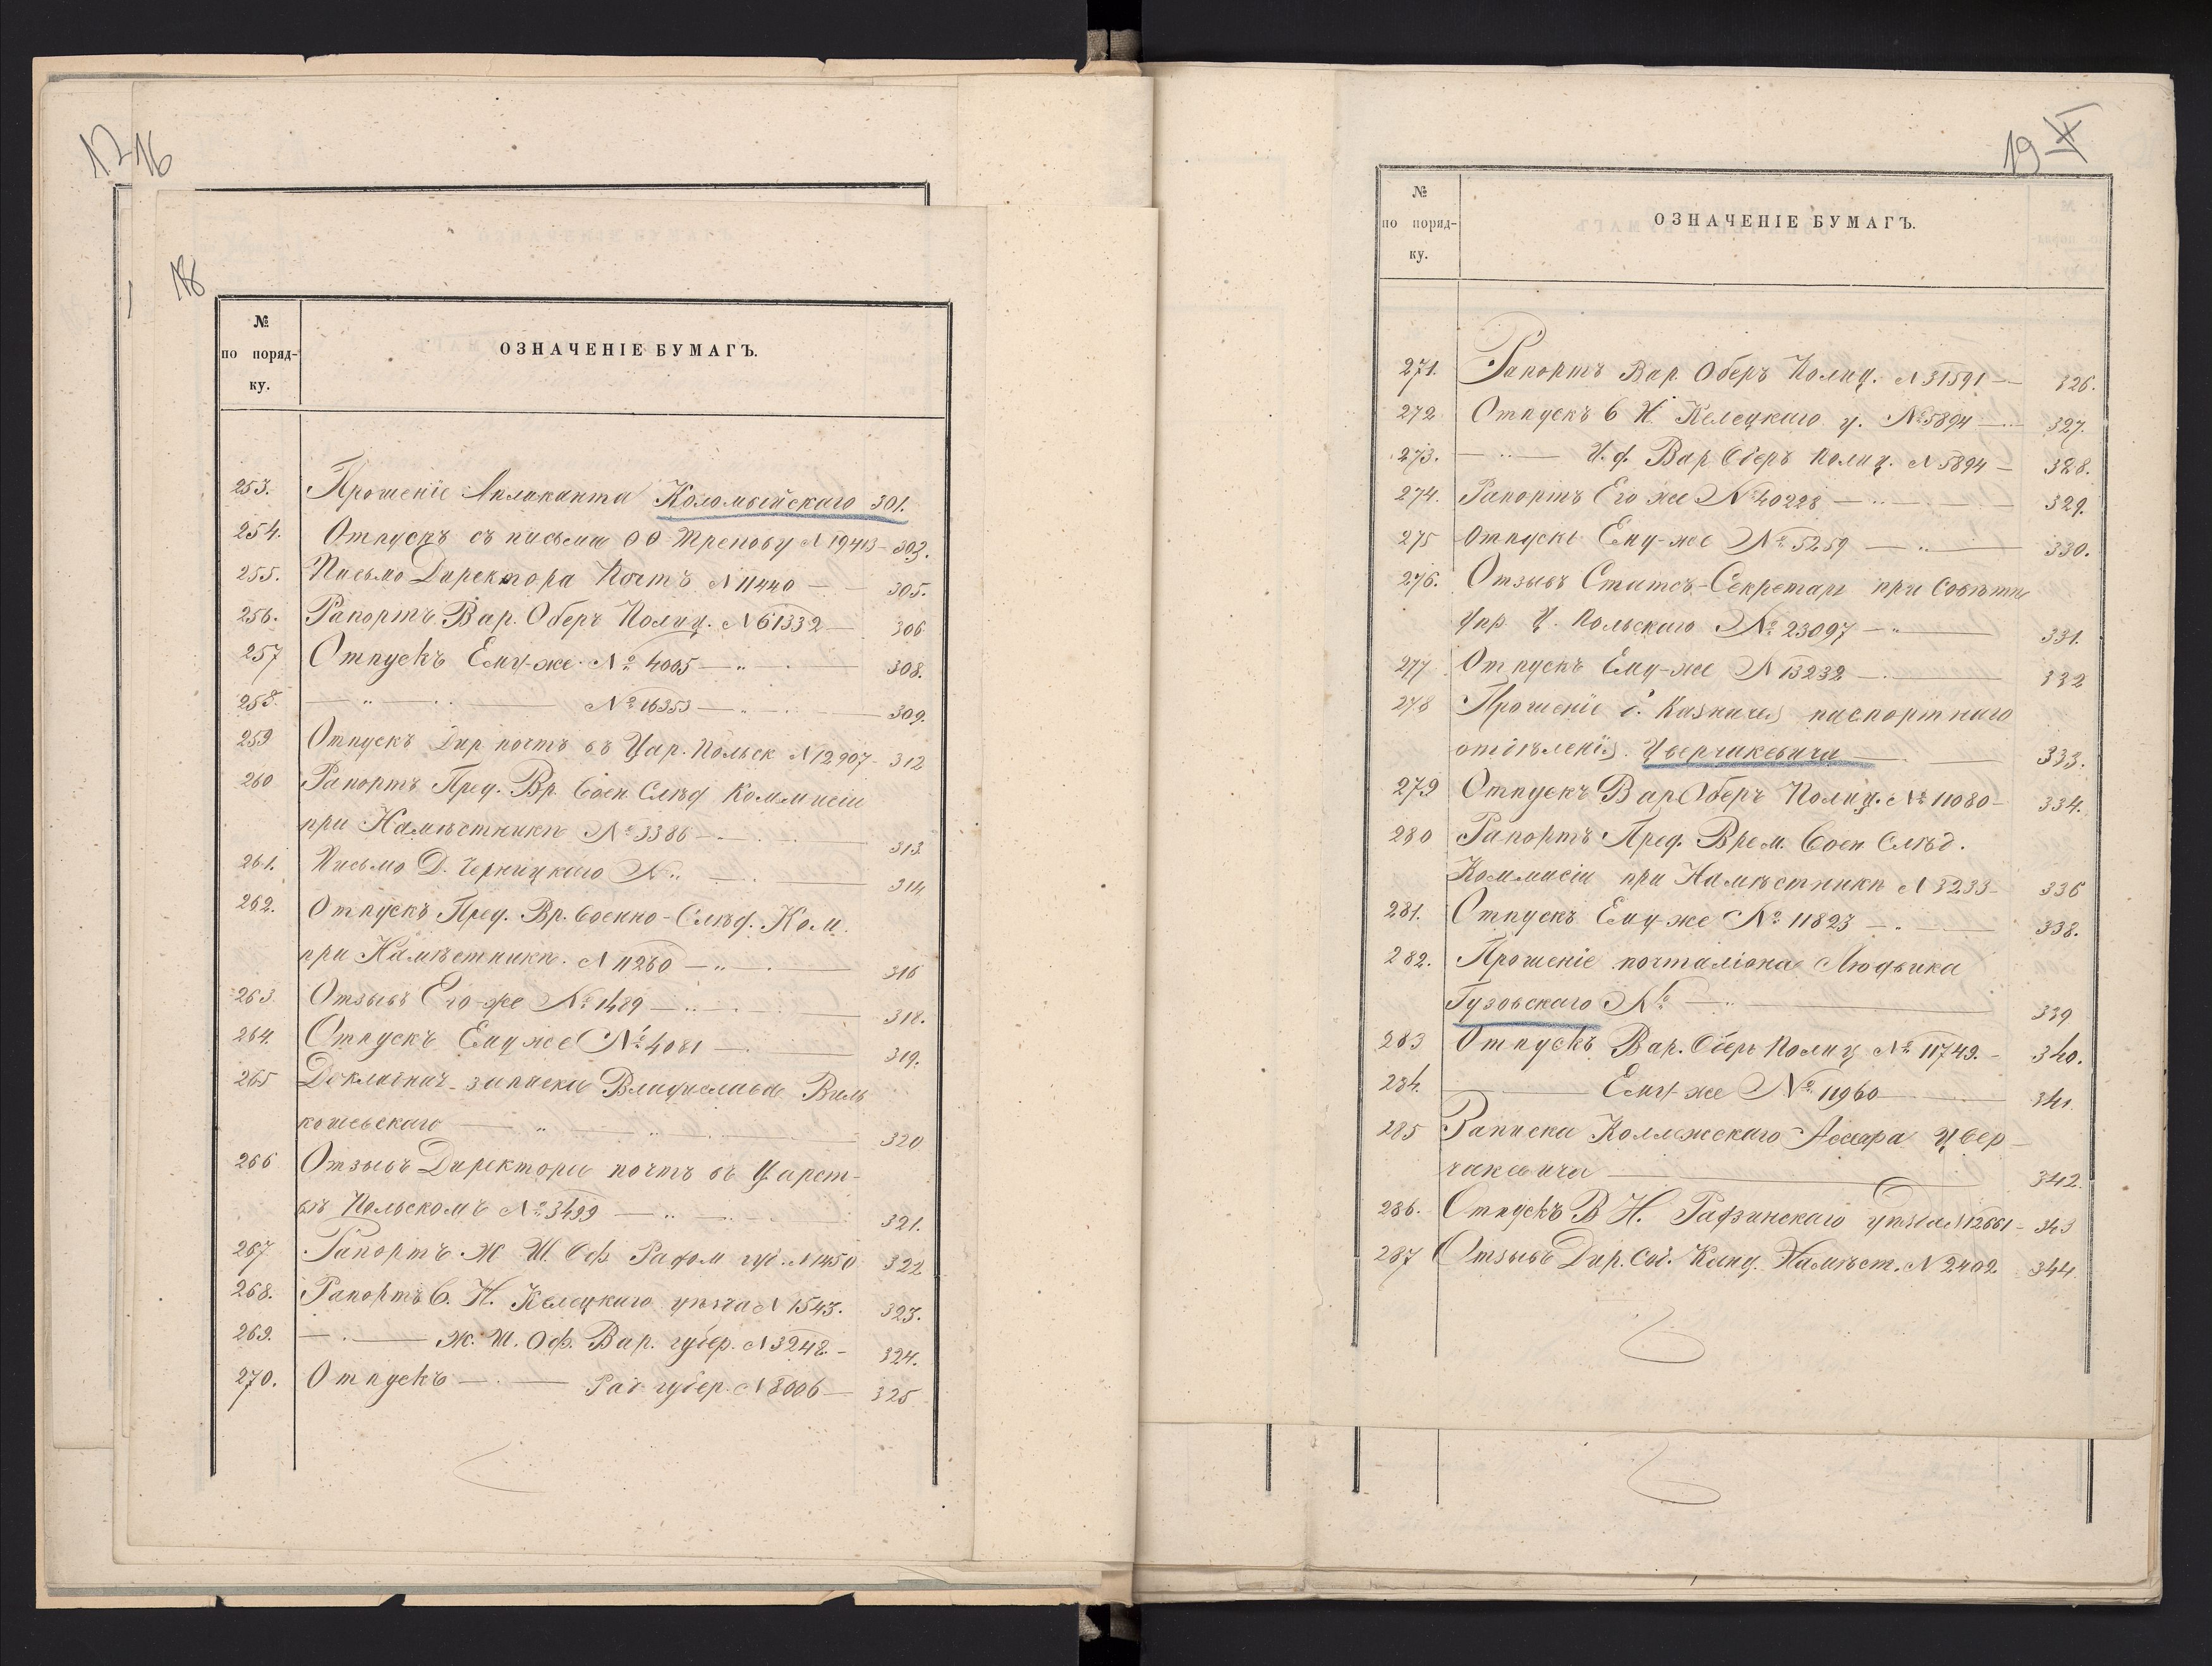 17 16
18
№
по поряд-
ку.
ОЗНАЧЕНІЕ БУМАГЪ.
253. Прошеніе Апликанта Коломыйскаго 301.
254. Отпускъ съ письма ОО Трепову N 19413 - 302.
255. Письмо Директора Почтъ N 11440 — 305.
256. Рапортъ Вар. Оберъ Полиц. N 61332 — 306
257 Отпускъ Ему-же № 4005 — „ — 308.
258. — „ — № 16353 — „ — 309.
259 Отпускъ Дир почтъ въ Цар. Польск N 12907 - 312
260 Рапортъ Пред. Вр. Воен Слѣд Коммисіи
при Намѣстникѣ № 3386 — 313
261. Письмо Д. Черницкаго N „ — 314
262. Отпускъ Пред. Вр. Военно-Слѣд. Ком.
при Намѣстникѣ. N 11260 — „ — 316
263 Отзывъ Его-же № 1489 — „ — 318.
264. Отпускъ Ему же № 4081 — 319.
265 Докладная записка Владислава Виль
кошевскаго — „ — „ — 320
266 Отзывъ Директора почтъ въ Царст-
вѣ Польскомъ № 3499 — „ — 321.
267 Рапортъ Ж Ш. Оф Радом губ. N 1450 322
268. Рапортъ В. Н. Келецкаго уѣзда N 1543. 323.
269. — Ж. Ш. Оф. Вар. губер. N 3248 - 324.
270. Отпускъ — Рад губер. N 8006 — 325
19
№
по поряд-
ку.
ОЗНАЧЕНІЕ БУМАГЪ.
271. Рапортъ Вар. Оберъ Полиц. N 31591 — 326.
272 Отпускъ В Н. Келецкаго у. № 5894 — 327.
273. — „ — И. д. Вар Оберъ Полиц. N 5894 — 328.
274. Рапортъ Его же № 40228 — „ — 329.
275 Отпускъ Ему-же № 5259 — „ — 330.
276. Отзывъ Статсъ-Секретаря при Совѣтѣ
Упр Ц. Польскаго № 23097 — „ — 331.
277 Отпускъ Ему-же N 13232 — 332
278 Прошеніе б. Казначея паспортнаго
отдѣленія Цверчакевича — 333.
279 Отпускъ Вар Оберъ Полиц. № 11080 - 334.
280 Рапортъ Пред. Врем. Воен Слѣд.
Коммисіи при Намѣстникѣ N 3233 - 336
281. Отпускъ Ему-же № 11823 — 338.
282. Прошеніе почталіона Людвика
Гузовскаго № — „ — 339
283 Отпускъ Вар. Оберъ Полиц № 11749. - 340.
284. — Ему-же № 11960 — 341
285 Записка Коллежскаго Ассесора Цвер-
чакевича — 342.
286. Отпускъ В Н. Радзинскаго уѣзда N 12661 - 343
287 Отзывъ Дир. Соб. Канц. Намѣст. N 2402 344